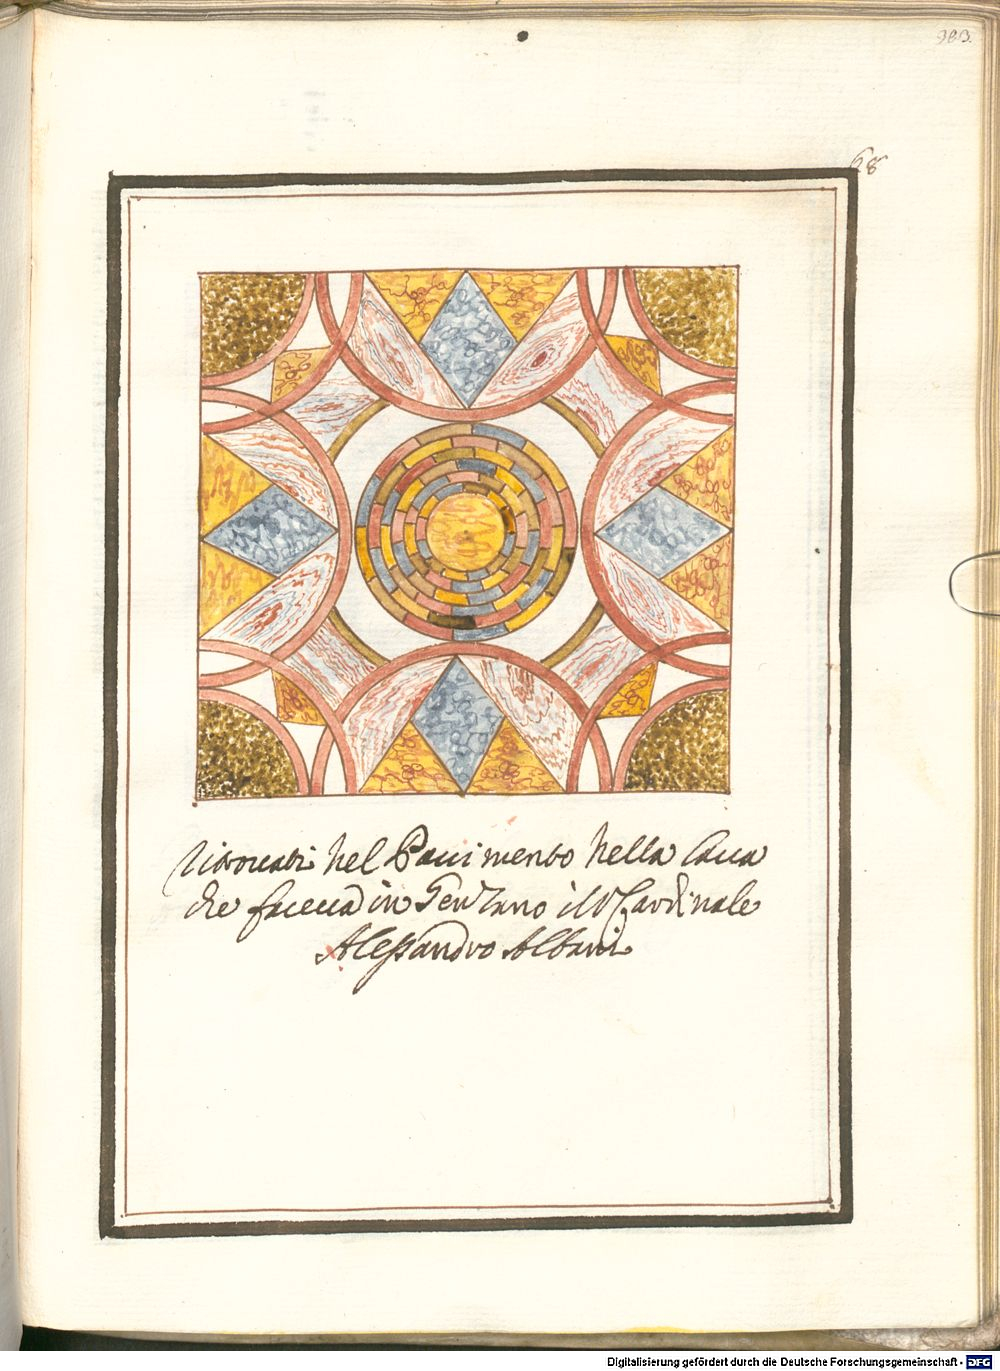 383.
68
ritrovati nel Pavimento nella Cava
che faceva in Genzano il Cardinale
Alessandro Albani
Digitalisierung gefördert durch die Deutsche Forschungsgemeinschaft - DFG